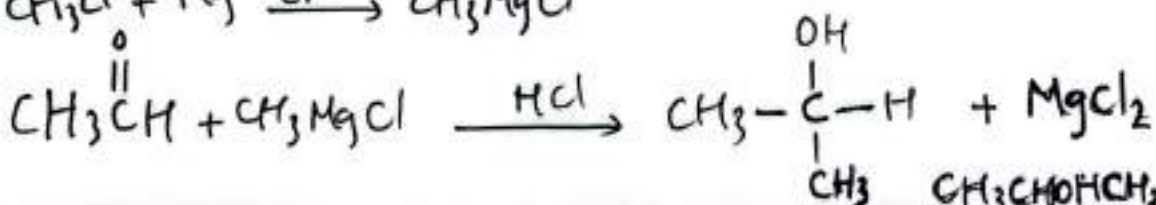 CH₃Cl + Mg → CH₃MgCl
O
||
CH₃CH + CH₃MgCl —HCl→ CH₃-C-H + MgCl₂
OH
CH₃ CH₃CHOHCH₃